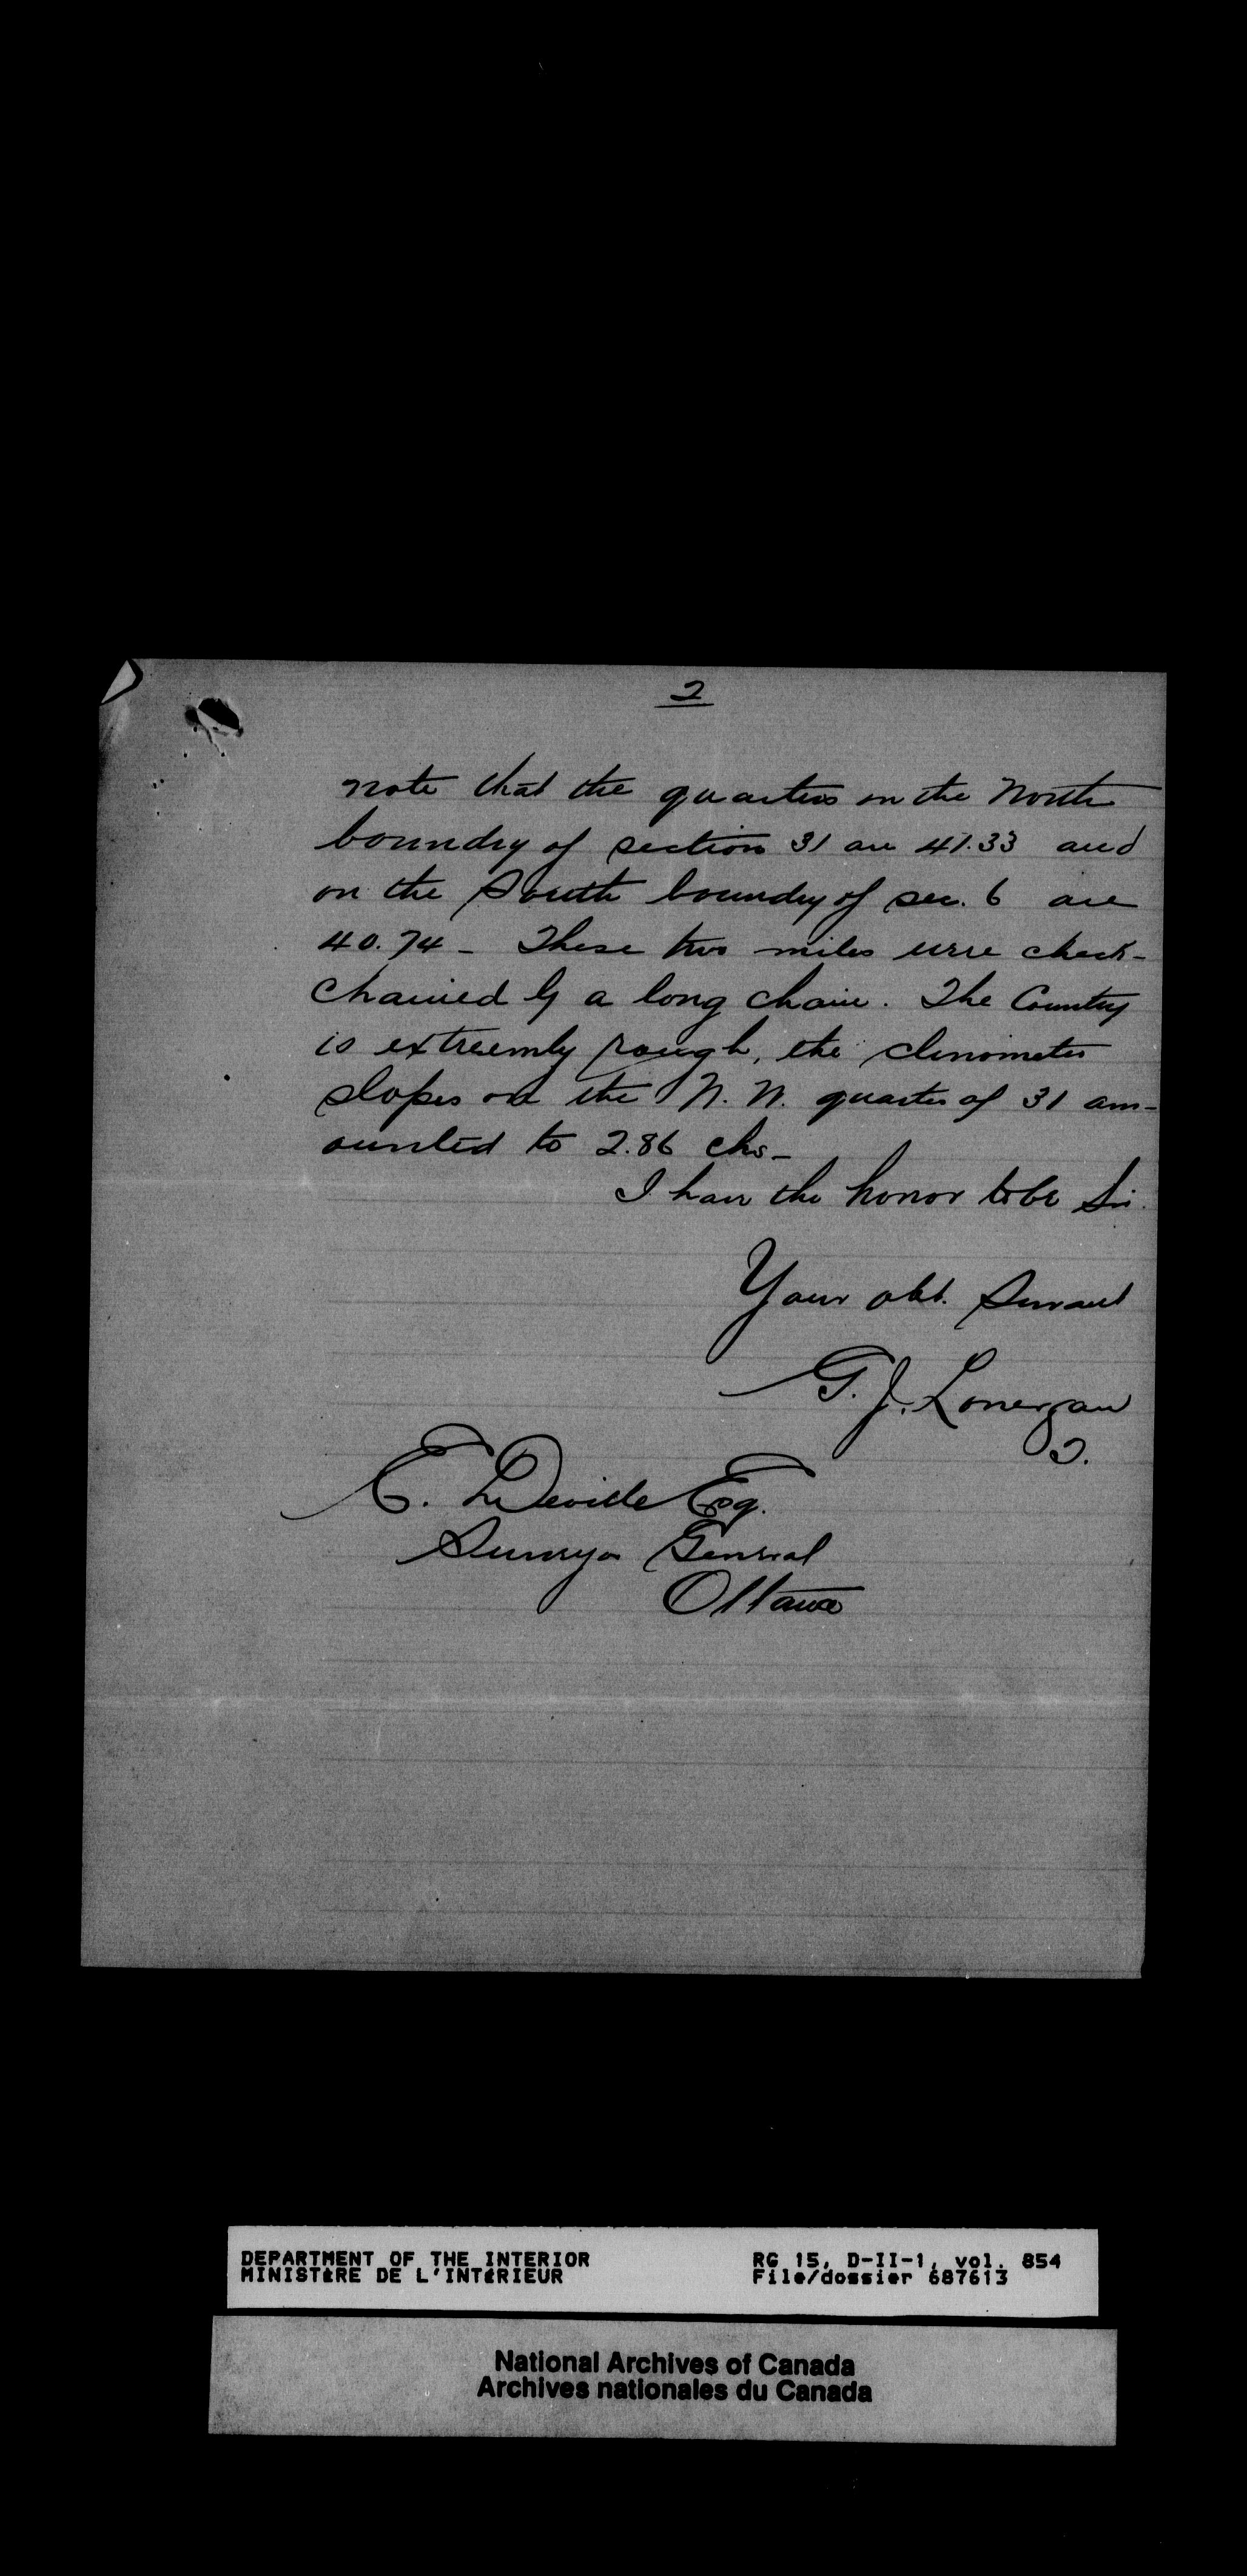 2
note that the quarters on the North
boundry of section 31 are 41.33 and
on the South boundry of sec. 6 are
40.74 - These two miles were check-
chained by a long chain. The Country
is extreemly rough, the clinometer
slopes on the N. W. quarter of 31 am-
ounted to 2.86 chs -
I have the honor to be Sir
Your obt. Servant
G. J. Lonergan
E. Deville Esq.
Surveyor General
Ottawa
DEPARTMENT OF THE INTERIOR RG 15, D-II-1, vol. 854
MINISTÈRE DE L'INTÉRIEUR File/dossier 687613
National Archives of Canada
Archives nationales du Canada